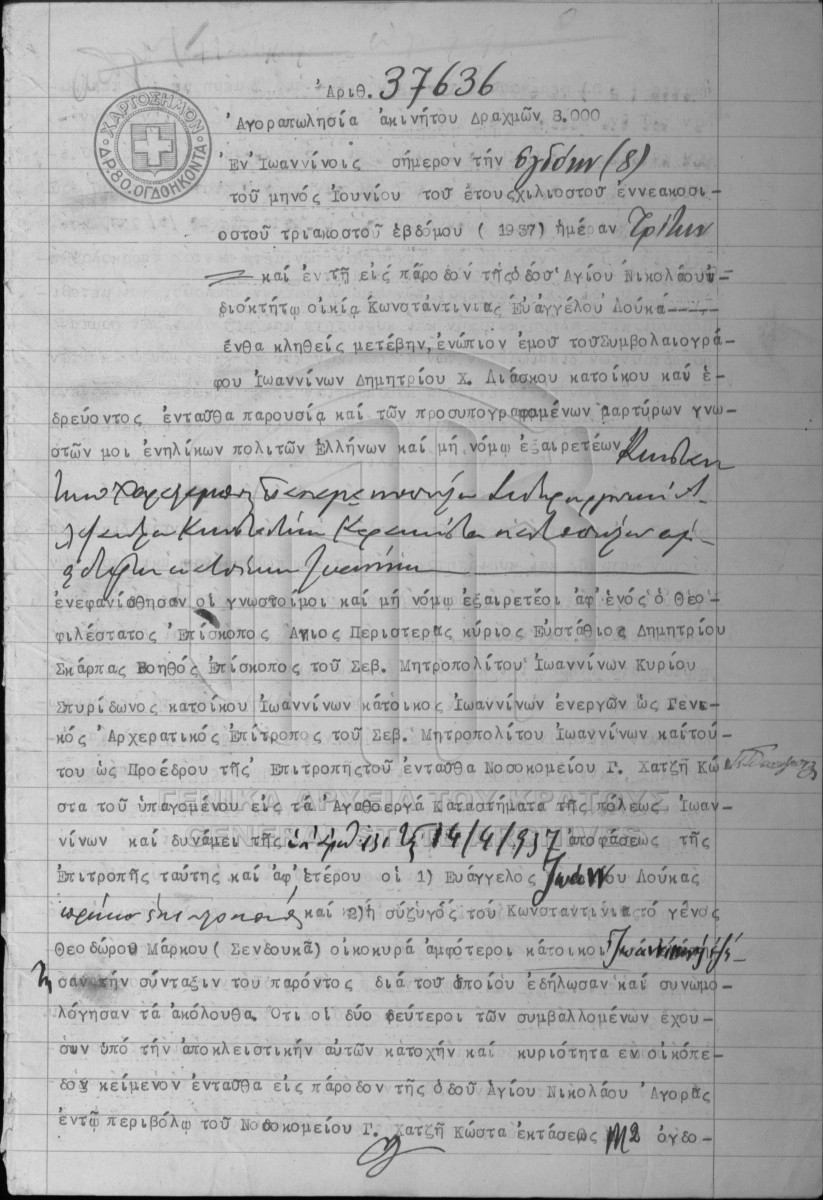 Ἀριθ. 37636
ΧΑΡΤΟΣΗΜΟΝ
ΔΡ. 80. ΟΓΔΟΗΚΟΝΤΑ
Ἀγοραπωλησία ἀκινήτου Δραχμῶν 8.000
Ἐν Ἰωαννίνοις σήμερον τήν ὀγδόην (8)
τοῦ μηνός Ἰουνίου τοῦ ἔτους χιλιοστοῦ ἐννεακοσι-
οστοῦ τριακοστοῦ ἑβδόμου ( 1937) ἡμέραν Τρίτην
καί ἐν τῇ εἰς πάροδον τῆς ὁδοῦ Ἁγίου Νικολάου
διοκτήτῳ οἰκίᾳ Κωνσταντινιας Εὐαγγέλου Λούκα-----
ἔνθα κληθείς μετέβην, ἐνώπιον ἐμοῦ τοῦ Συμβολαιογρά-
φου Ἰωαννίνων Δημητρίου Χ. Λιάσκου κατοίκου καί ἑ-
δρεύοντος ἐνταῦθα παρουσίᾳ καί τῶν προσυπογραφαμένων μαρτύρων γνω-
στῶν μοι ἐνηλίκων πολιτῶν Ἑλλήνων καί μή νόμῳ ἐξαιρετέων
ἐνεφανίσθησαν οἱ γνωστοί μοι καί μή νόμῳ ἐξαιρετέοι ἀφ' ἑνός ὁ Θεο-
φιλέστατος Ἐπίσκοπος Ἅγιος Περιστερᾶς κύριος Εὐστάθιος Δημητρίου
Σκάρπας Βοηθός Ἐπίσκοπος τοῦ Σεβ. Μητροπολίτου Ἰωαννίνων Κυρίου
Σπυρίδωνος κατοίκου Ἰωαννίνων κάτοικος Ἰωαννίνων ἐνεργῶν ὡς Γενι-
κός Ἀρχερατικός Ἐπίτροπος τοῦ Σεβ. Μητροπολίτου Ἰωαννίνων καί τού-
του ὡς Προέδρου τῆς Ἐπιτροπῆς τοῦ ἐνταῦθα Νοσοκομείου Γ. Χατζῆ Κώ
στα τοῦ ὑπαγομένου εἰς τά Ἀγαθοεργά Καταστήματα τῆς πόλεως Ἰωαν-
νίνων καί δυνάμει τῆς ὑπ' ἀριθ. 131 τῆς 14/4/937 ἀποφάσεως τῆς
Ἐπιτροπῆς ταύτης καί ἀφ' ἑτέρου οἱ 1) Εὐάγγελος Ἰωάννου Λούκας
καί 2) ἡ σύζυγός του Κωνσταντινια τό γένος
Θεοδώρου Μάρκου ( Σενδουκᾶ) οἰκοκυρά ἀμφότεροι κάτοικοι
σαν τήν σύνταξιν του παρόντος διά τοῦ ὁποίου ἐδήλωσαν καί συνωμο-
λόγησαν τά ἀκόλουθα. Ὅτι οἱ δύο δεύτεροι τῶν συμβαλλομένων ἔχου-
σιν ὑπό τήν ἀποκλειστικήν αὐτῶν κατοχήν καί κυριότητα ἕν οἰκόπε-
δον κείμενον ἐνταῦθα εἰς πάροδον τῆς ὁδοῦ Ἁγίου Νικολάου Ἀγορᾶς
ἐν τῷ περιβόλῳ τοῦ Νοσοκομείου Γ. Χατζῆ Κώστα ἐκτάσεως Μ2 ὀγδο-
ΓΕΝΙΚΑ ΑΡΧΕΙΑ ΤΟΥ ΚΡΑΤΟΥΣ
GENERAL STATE ARCHIVES